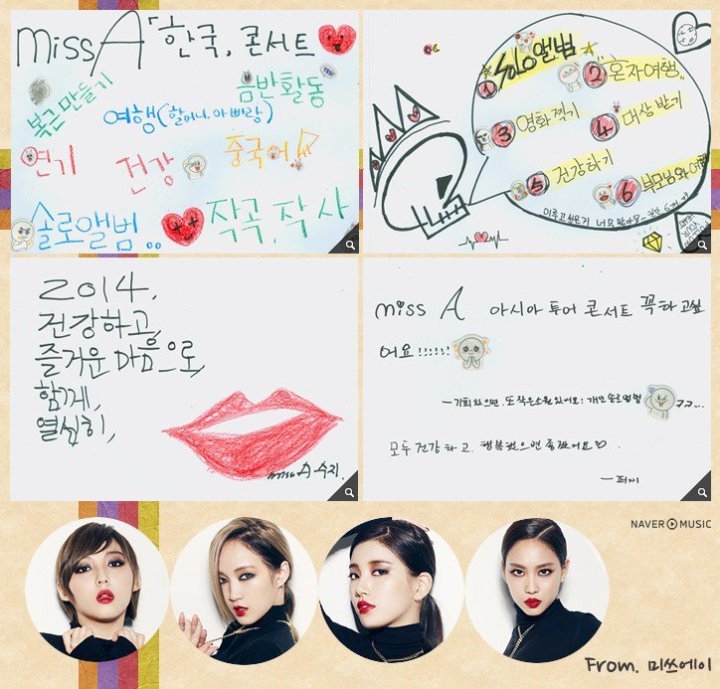 miss A 「한국, 콘서트
복근 만들기
음반활동
여행(할머니, 아빠랑)
연기
건강
중국어
솔로앨범..
작곡, 작사
① Solo앨범
② 혼자여행
③ 영화 찍기
④ 대상 받기
⑤ 건강하기
⑥ 부모님과 여행
2014.
건강하고,
즐거운 마음으로,
함께,
열심히,
miss A 수지.
miss A 아시아 투어 콘서트 꼭 하고싶
어요!!!!!
- 기회 있으면, 또 작은 소원 있어요: 개인 솔로앨범 ㅋㅋ...
모두 건강하고, 행복했으면 좋겠어요♡.
- 페이
NAVER MUSIC
From. 미쓰에이